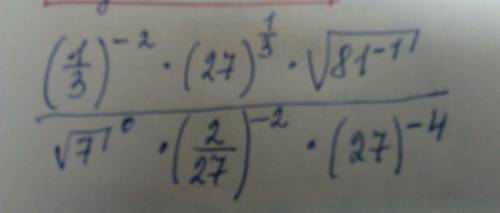 (1/3)^-2 · (27)^1/3 · √81^-1
√7^0 · (2/27)^-2 · (27)^-4